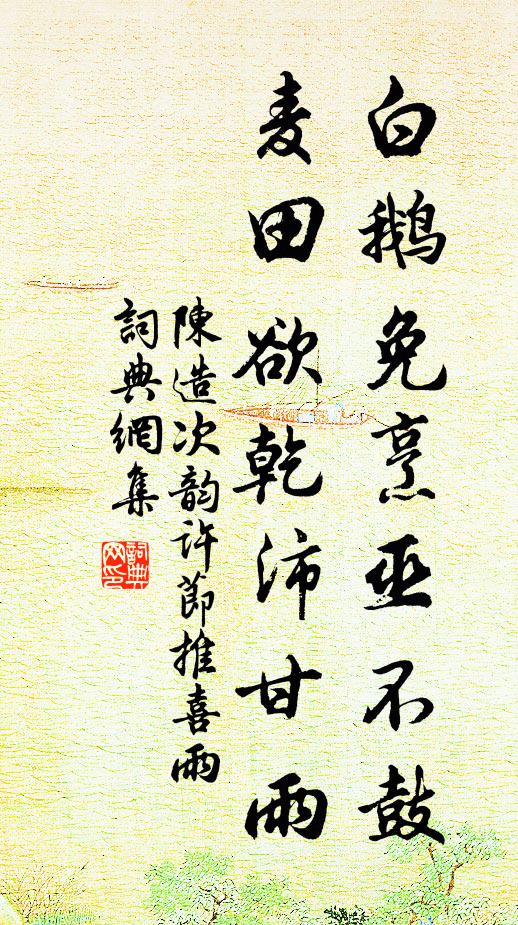 白鹅免烹巫不鼓
麦田欲乾沛甘雨
陳造次韵许節推喜雨
詞典網集
詞典网印